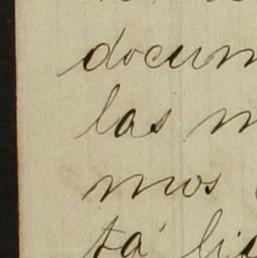 docum
las m
mos
tá lic